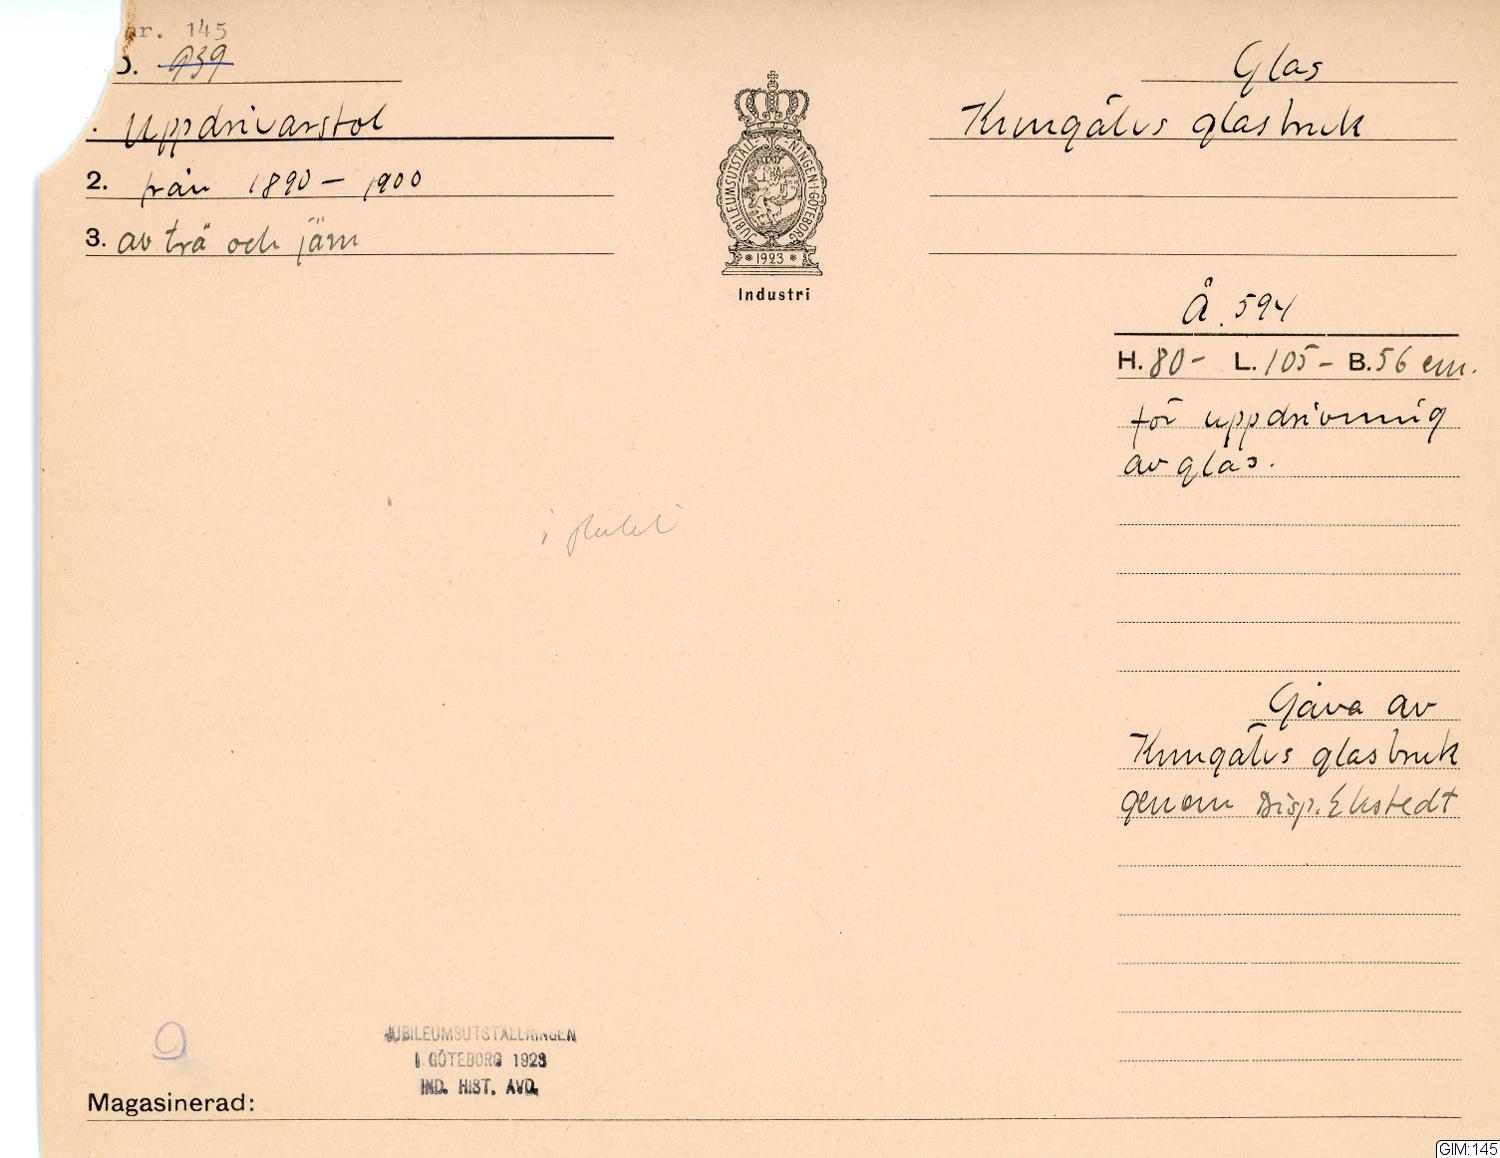 nr. 145
939
Uppdrivarstol
2. från 1890 – 1900
3. av trä och järn
JUBILEUMSUTSTÄLLNINGEN I GÖTEBORG
* 1923 *
Industri
Glas
Kungälvs glasbruk
Å. 594
H. 80 – L. 105 – B. 56 cm.
för uppdrivning
av glas.
i
Gåva av
Kungälvs glasbruk
genom Disp. Ekstedt
JUBILEUMSUTSTÄLLNINGEN
I GÖTEBORG 1923
IND. HIST. AVD.
Magasinerad:
GIM:145